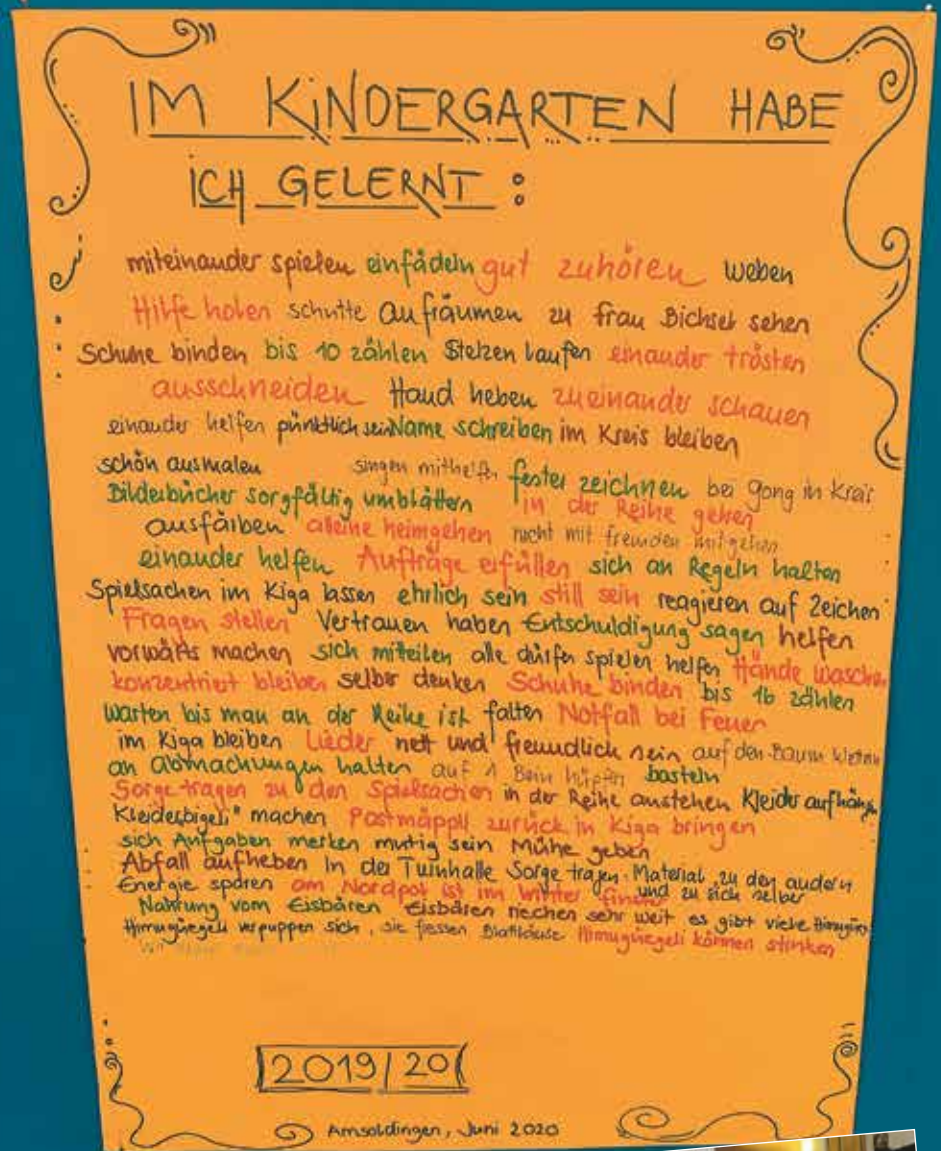 IM KINDERGARTEN HABE
ICH GELERNT :
miteinander spielen einfädeln gut zuhören weben
Hilfe holen schutte aufräumen zu Frau Bichsel sehen
Schuhe binden bis 10 zählen Stelzen laufen einander trösten
ausschneiden Hand heben zueinander schauen
einander helfen pünktlich sein Name schreiben im Kreis bleiben
schön ausmalen singen mithelfen fester zeichnen bei Gong in Kreis
Bilderbücher sorgfältig umblättern in der Reihe gehen
ausfärben alleine heimgehen nicht mit fremden mitgehen
einander helfen Aufträge erfüllen sich an Regeln halten
Spielsachen im Kiga lassen ehrlich sein still sein reagieren auf Zeichen
Fragen stellen Vertrauen haben Entschuldigung sagen helfen
vorwärts machen sich mitteilen alle dürfen spielen helfen Hände waschen
konzentriert bleiben selber denken Schuhe binden bis 16 zählen
warten bis man an der Reihe ist falten Notfall bei Feuer
im Kiga bleiben Lieder nett und freundlich sein auf den Baum
an Abmachungen halten auf 1 Bein hüpfen basteln
Sorge tragen zu den Spielsachen in der Reihe anstehen Kleider aufhängen
"Kleiderbigeli" machen Postmäppli zurück in Kiga bringen
sich Aufgaben merken mutig sein Mühe geben
Abfall aufheben In der Turnhalle Sorge tragen Material, zu den andern
und zu sich selber
Energie sparen am Nordpol ist im Winter finster
Nahrung vom Eisbären Eisbären riechen sehr weit es gibt viele
Himugüegeli verpuppen sich, sie fressen Blattläuse Himugüegeli können stinken
2019/20
Amsoldingen, Juni 2020